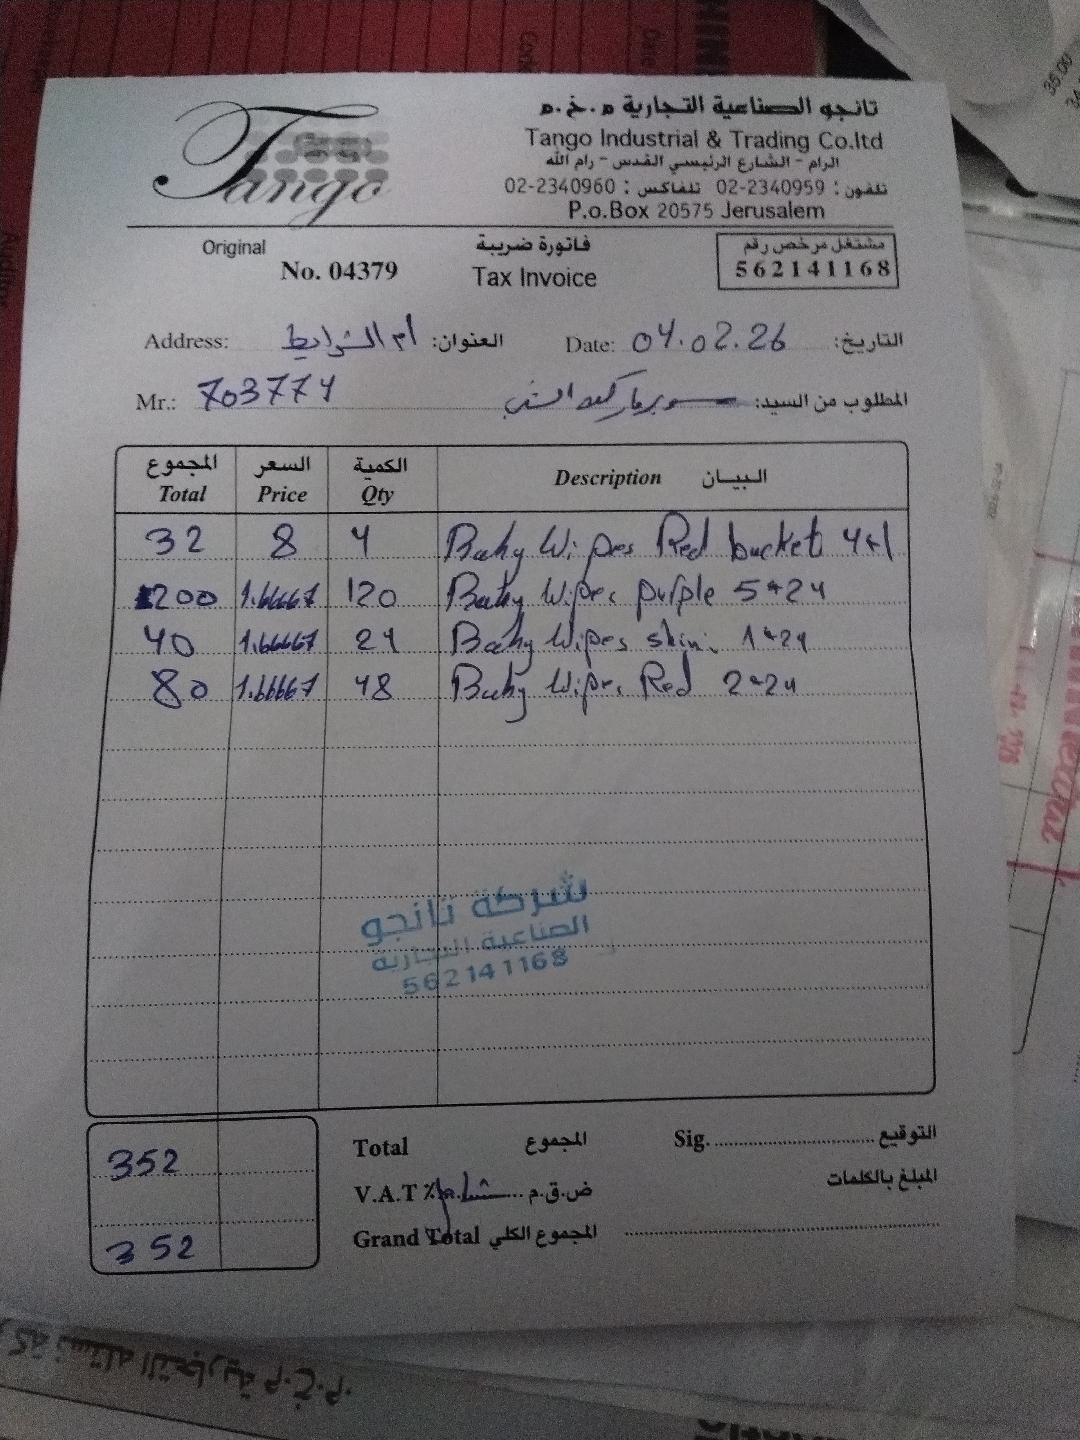 تانجو الصناعية التجارية م.خ.م
Tango Industrial & Trading Co.ltd
الرام - الشارع الرئيسي القدس - رام الله
تلفون : 02-2340959 تلفاكس : 02-2340960
P.o.Box 20575 Jerusalem
Tango
Original No. 04379
فاتورة ضريبة
Tax Invoice
مشتغل مرخص رقم
562141168
Address: أم الشرايط العنوان: Date: 04.02.26 التاريخ:
Mr.: 703774 سوبرماركت المطلوب من السيد:
المجموع السعر الكمية البيان
Total Price Qty Description
32 8 4 Baby Wipes Red bucket 4*1
200 1.66667 120 Baby Wipes purple 5*24
40 1.66667 24 Baby Wipes skin 1*24
80 1.66667 48 Baby Wipes Red 2*24
شركة تانجو
الصناعية التجارية
562141168
352 Total المجموع Sig. التوقيع
V.A.T % شامل ض.ق.م المبلغ بالكلمات
352 Grand Total المجموع الكلي
35.00
التجارية م.خ.م.